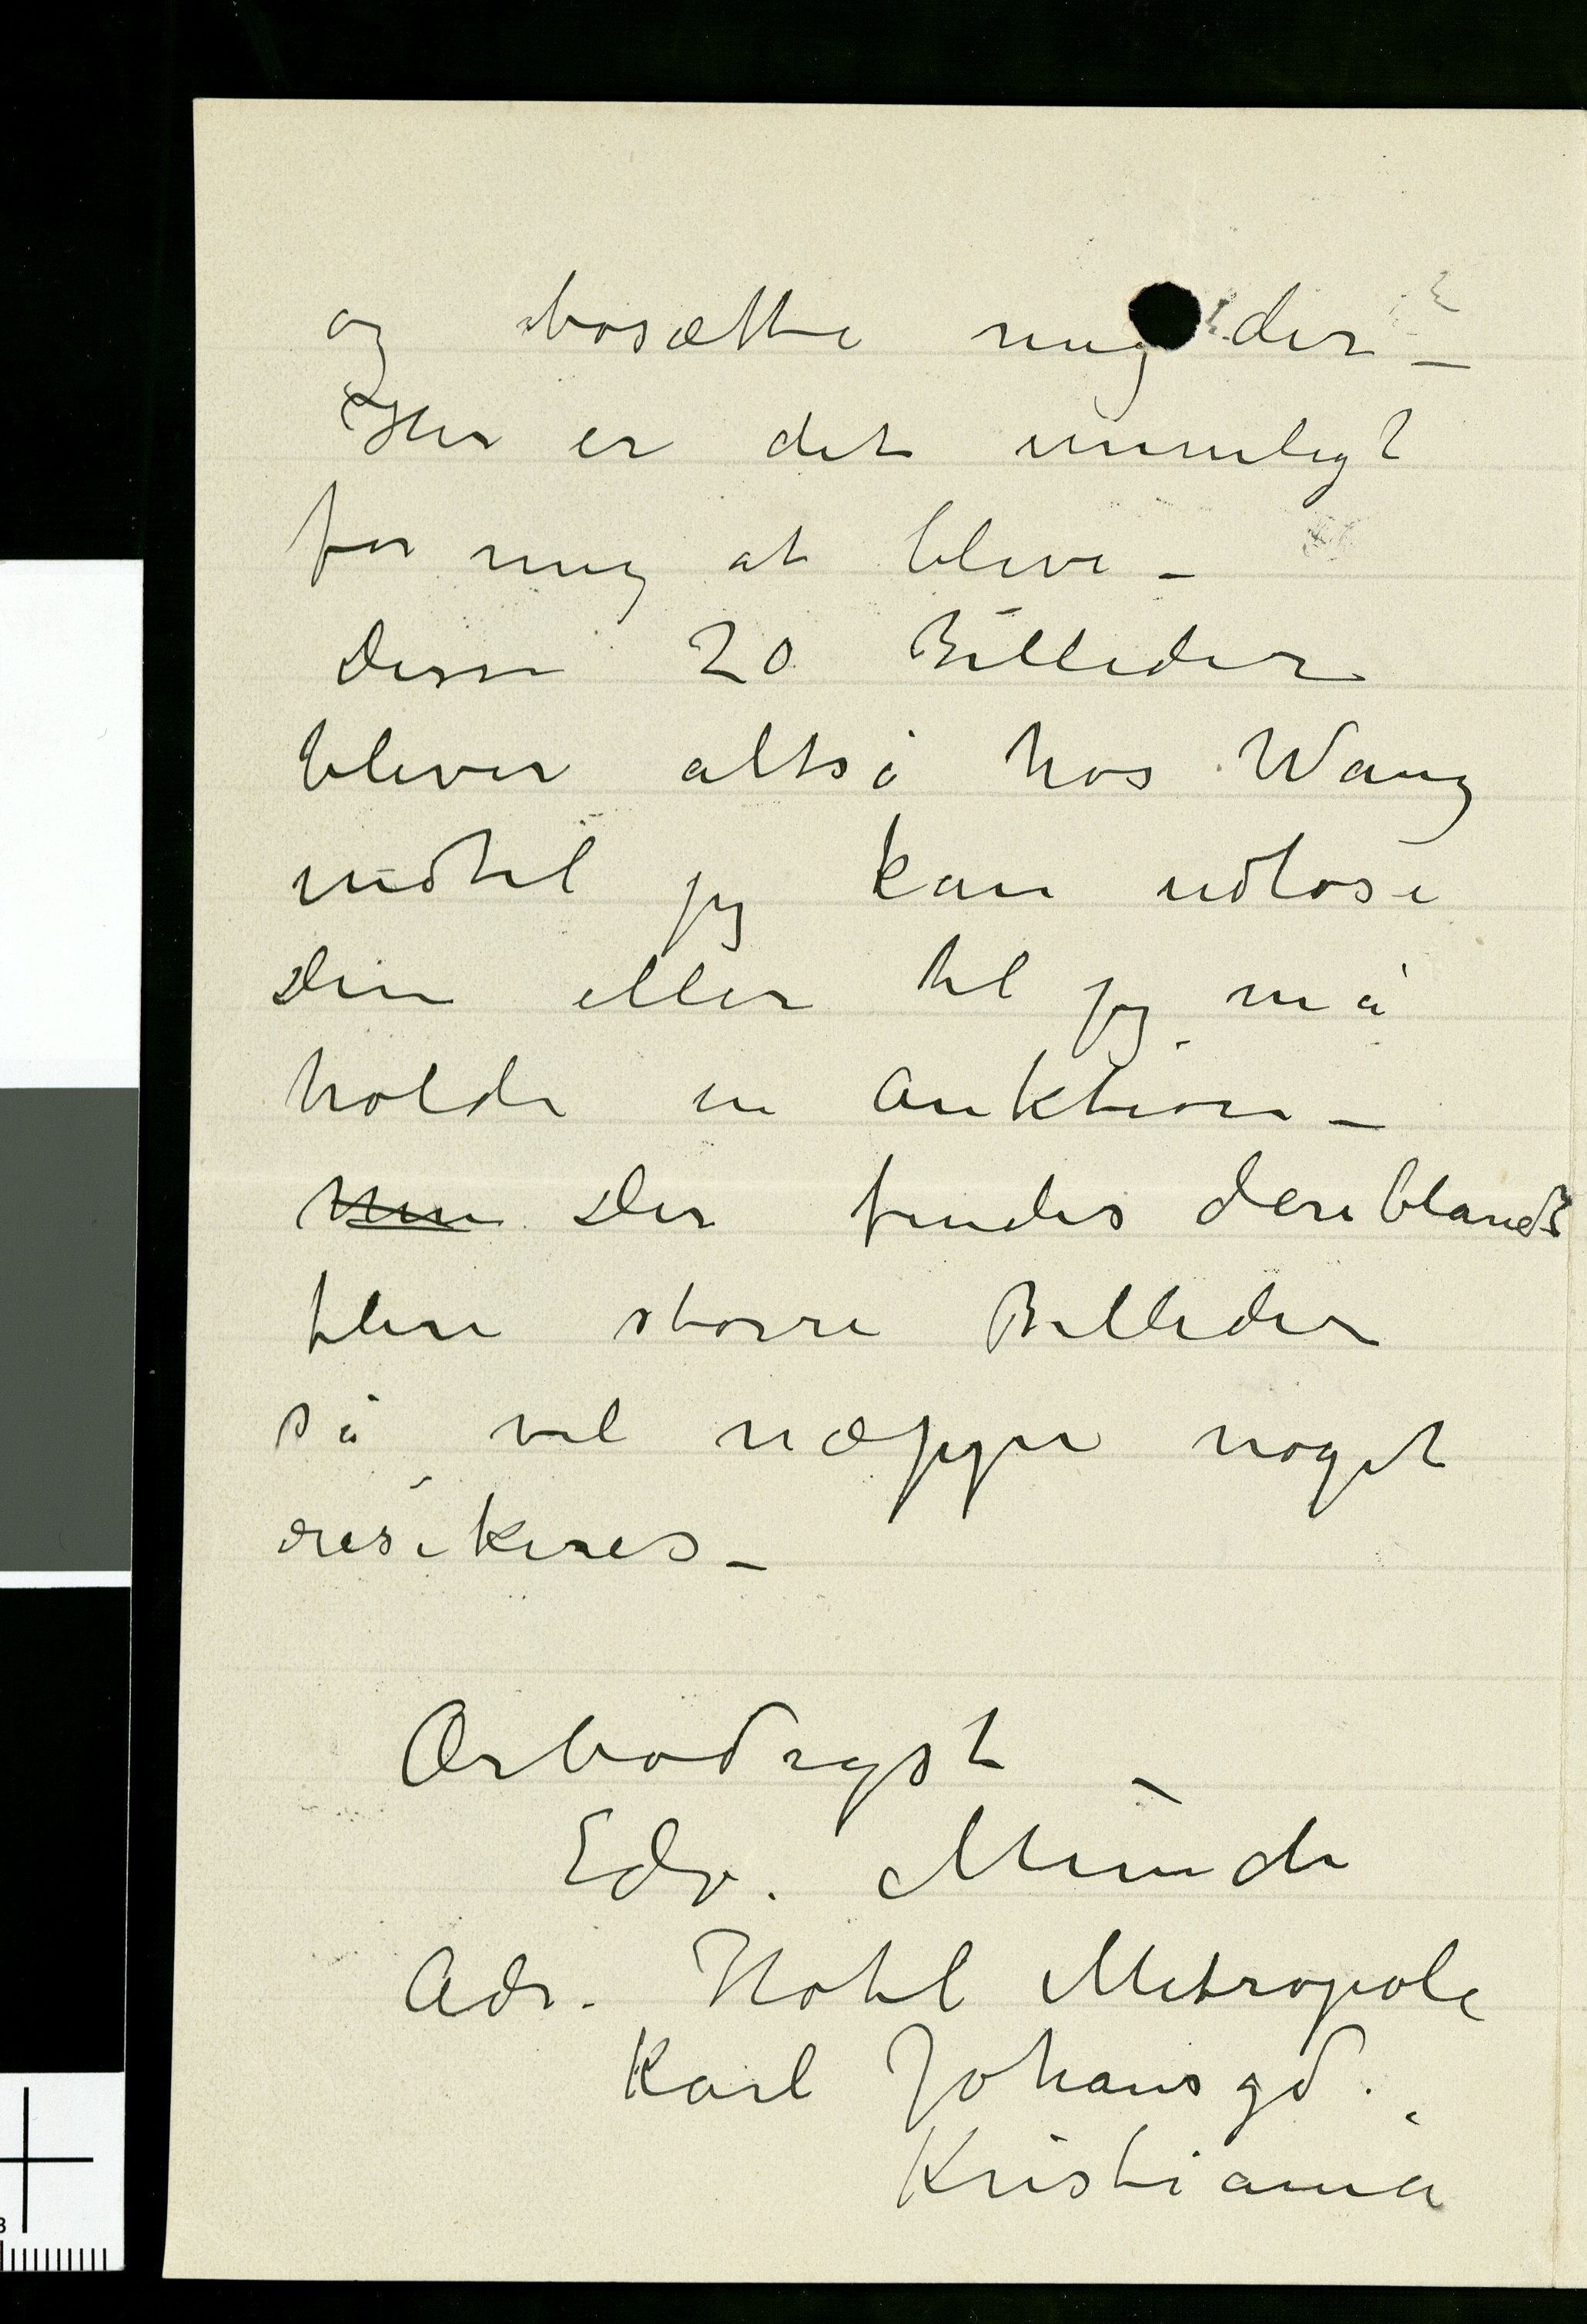 og bosætte mig der –
Her er det umuligt
for mig at blive –
Disse 20 Billeder
bliver altså hos Wang
indtil jeg kan udløse
Dem eller til jeg må
holde en Auktion –
Men Der findes deriblandt
flere større Billeder
så vil næppe noget
resikeres –
Ærbødigst
Edv. Munch
Adr. Hotel Metropole
Karl Johansgd.
Kristiania